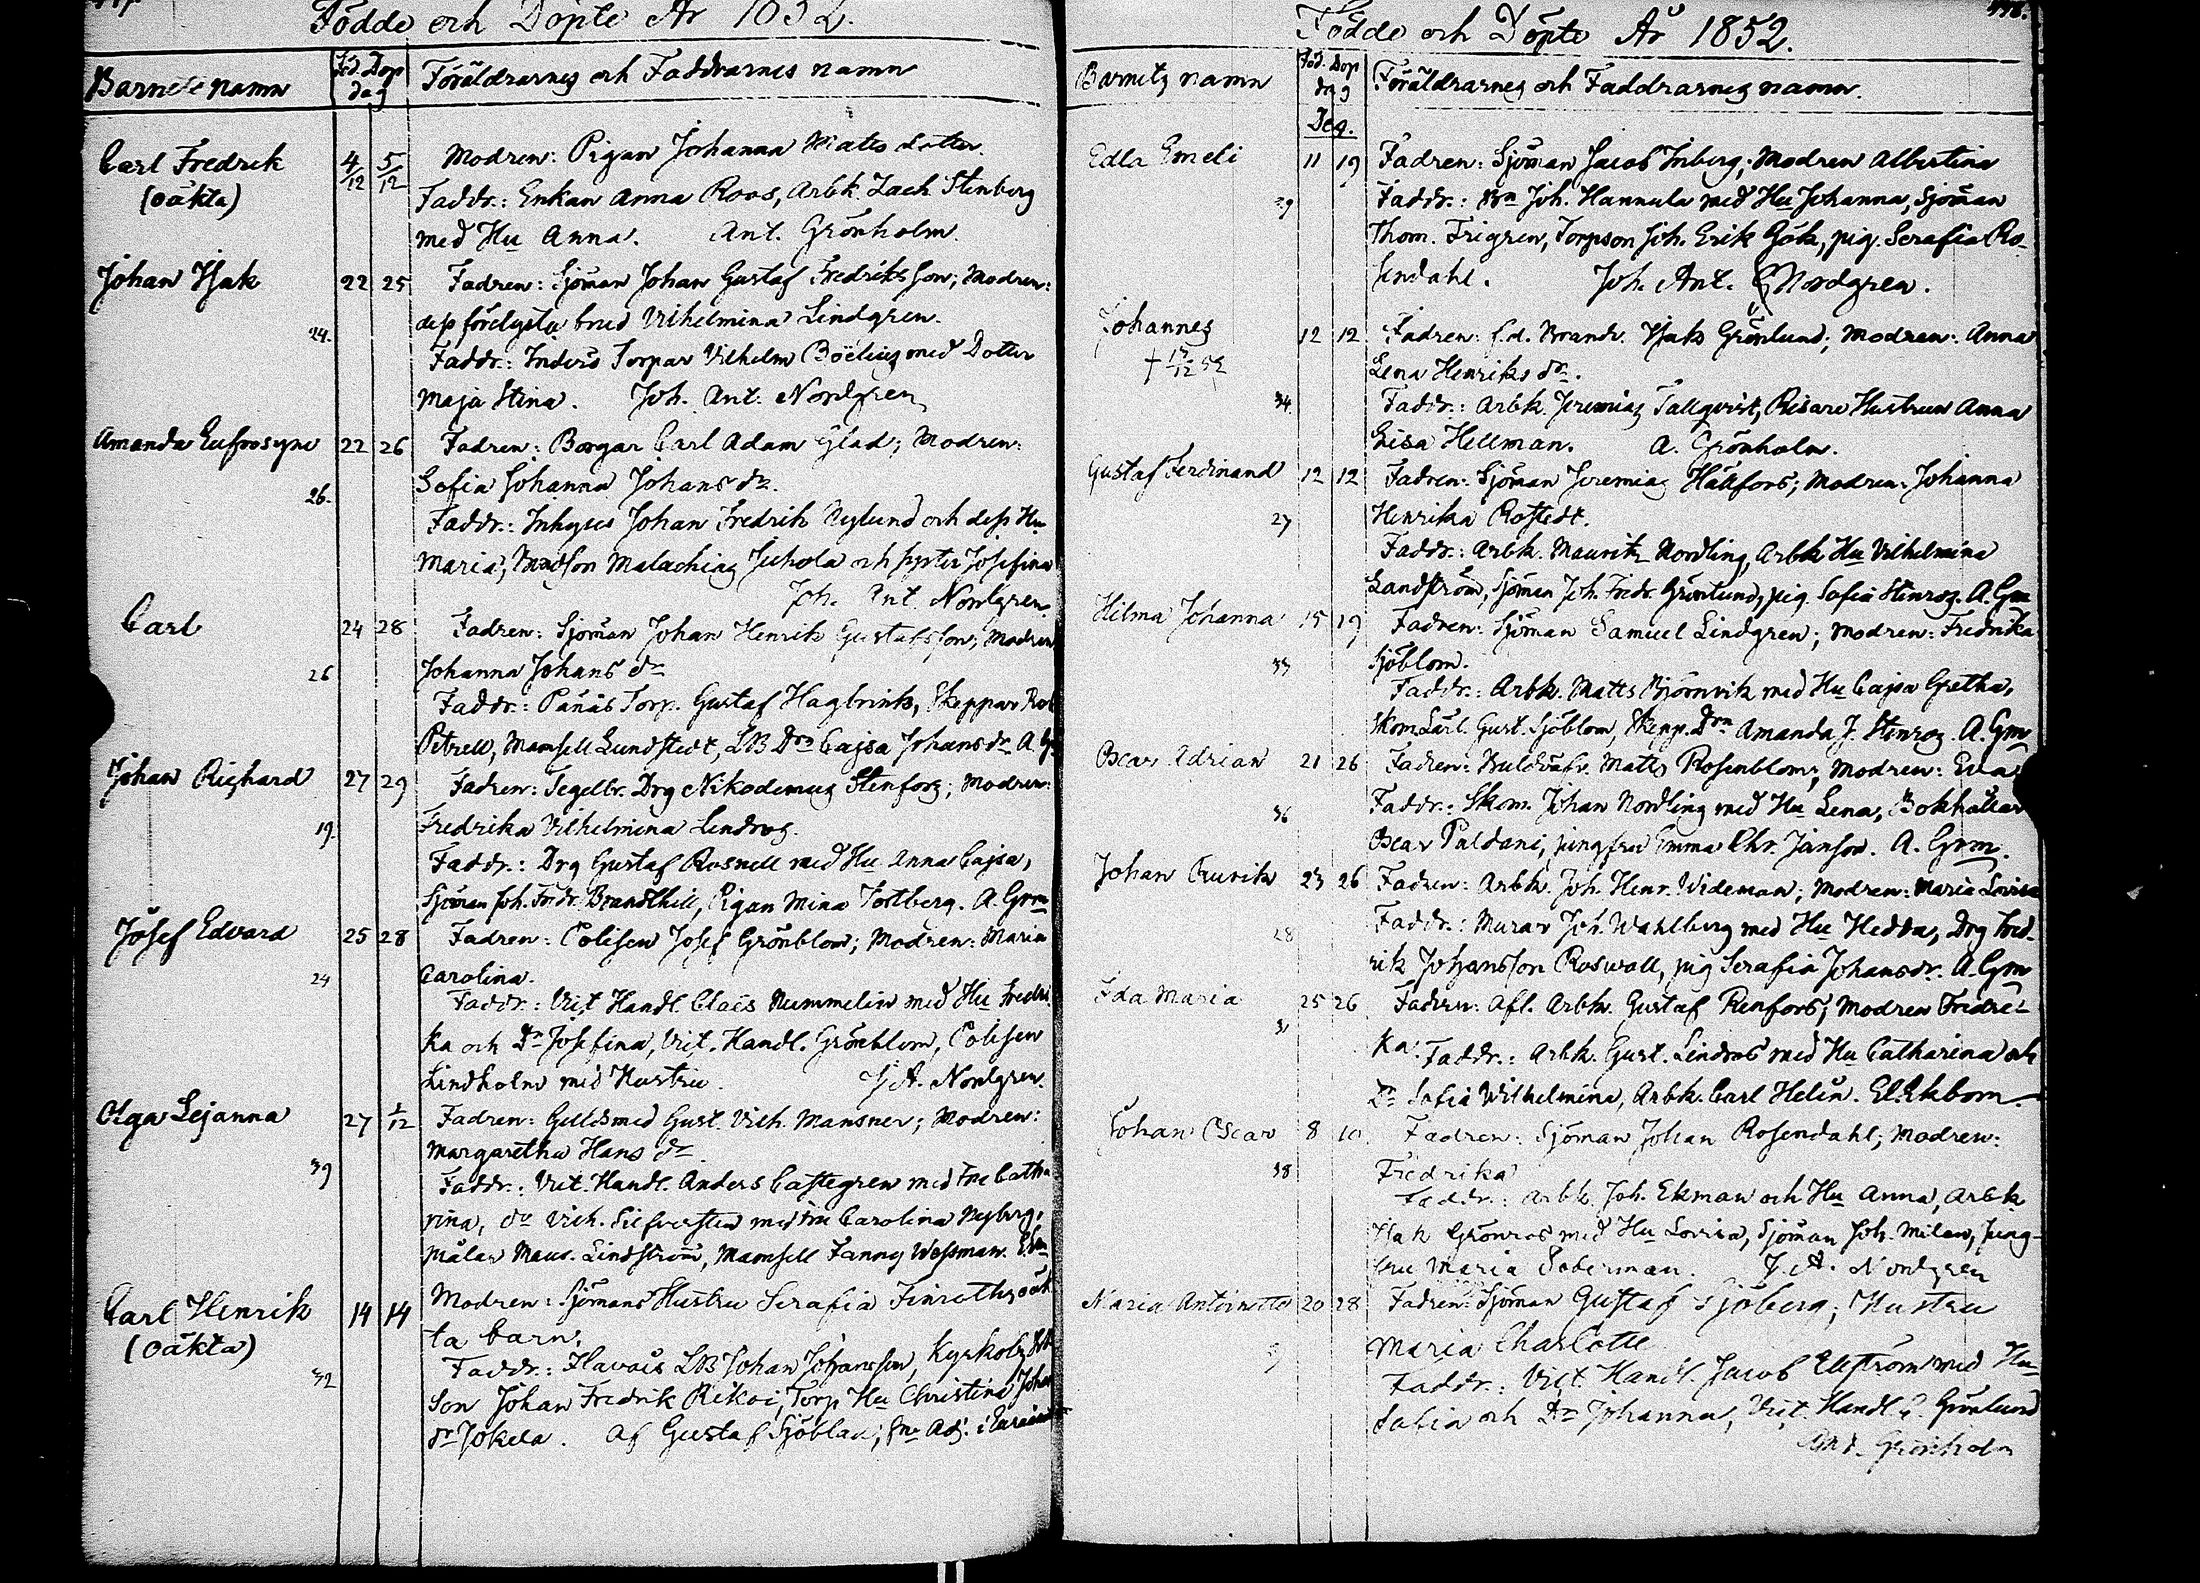 Födde och Döpte År 1852.
Barnets namn
Föd. Döp
dag
Föräldrarnes och Faddrarnes namn
Carl Fredrik 4/12 5/12 Modren: Pigan Johanna Mats dotter
(oäkta) Faddr.: Enkan Anna Roos, Arbk. Zach Stenberg
med Hu Anna. Ant. Grönholm
Johan Isak 22 25 Fadren: Sjöman Johan Gustaf Fredriksson; Modren:
dess förelysta brud Vilhelmina Lindgren.
24. Faddr.: Inderö Torpar Vilhelm Boëlius med Dotter
Maja Stina. Joh. Ant. Nordgren
Amanda Eufrosyne 22 26 Fadren: Borgar Carl Adam Glad; Modren:
Sofia Johanna Johans dr.
26. Faddr.: Inhyses Johan Fredrik Nylund och dess Hu
Maria, Malachias Juhola och syster Josefina
Joh. Ant. Nordgren
Carl 24 28 Fadren: Sjöman Johan Henrik Gustafsson; Modren
26 Johanna Johans dr
Faddr.: Panäs Torp. Gustaf Hagbrink, Skeppar Rob
Petrell, Mamsell Lundstedt, LB Drn Cajsa Johansdr A. G
Johan Richard 27 29 Fadren: Tegelbr. Drg Nikodemus Stenfors; Modren:
19. Fredrika Vilhelmina Lindros.
Faddr.: Drg Gustaf Rosnell med Hu Anna Cajsa,
Sjöman Joh. Fredr. Brandthill, Pigan Mina Tortberg. A. Grm
Josef Edvard 25 28 Fadren: Polisen Josef Grönblom; Modren: Maria
24 Carolina.
Faddr.: Vict. Handl. Claës Nummelin med Hu Fredri
ka och Dr Josefina, Vict. Handl. Grönblom, Polisen
Lindholm med Hustru. J. A. Nordgren.
Olga Sejanna 27 1/12 Fadren: Gullsmed Gust. Vilh. Mansner; Modren:
Margaretha Hans dr
39 Faddr.: Vict. Handl. Anders Castegren med Fru Catha
rina, do Vilh. Siefversted med Fru Carolina Nyberg,
Målar Maur. Lindström, Mamsell Fanny Wessman.
Carl Henrik 14 14 Modren: Sjömans Hustru Serafia Finroths oäk
(oäkta) ta barn.
32 Faddr.: Flavais LB Johan Johansson, Kyrkolz
Son Johan Fredrik Rikoi, Torp Hu Christina Johan
dr Jokela. Af Gustaf Sjöblad,
Födde och Döpte År 1852.
Barnets namn
Föd. Döp
dag
Föräldrarnes och Faddrarnes namn.
Dec.
Edla Emeli 11 19 Fadren: Sjöman Jacob Inberg; Modren Albertina
29 Faddr.: Bn Joh. Hannula med Hu Johanna, Sjöman
Thom. Frigren, Torpson Joh. Erik Gök, pig. Serafia Ro-
sendahl. Joh. Ant. Nordgren.
Johannes 12 12 Fadren: f.d. Brandv. Isak Grönlund; Modren: Anna
† 15/12 52 Lena Henriks dr.
34 Faddr.: Arbk. Jeremias Tallqvist, Risare Hustrun Anna
Lisa Hellman. A. Grönholm.
Gustaf Ferdinand 12 12 Fadren: Sjöman Jeremias Hällfors; Modren: Johanna
27 Henrika Rostedt.
Faddr.: Arbk. Mauritz Nordling, Arbk Hu Vilhelmina
Sandström, Sjöman Joh. Fredr. Grönlund, pig. Sofia Stenros. A. Grm
Hilma Johanna 15 19 Fadren: Sjöman Samuel Lindgren; Modren: Fredrika
33 Sjöblom.
Faddr.: Arbk. Matts Björnvik med Hu Cajsa Gretha,
Skom. Lärl. Gust. Sjöblom, Skepp. Drn Amanda J. Stenros. A. Grm
Oscar Adrian 21 26 Fadren: Matts Rosenblom; Modren: Eva
36 Faddr.: Skom. Johan Nordling med Hu Lena, Bokhållar
Oscar Paldani, jungfru Emma Chr. Janson. A. Grm.
Johan Rurik 23 26 Fadren: Arbk. Joh. Henr. Wideman; Modren: Maria Lovisa
28 Faddr.: Murar Joh. Wahlberg med Hu Hedda, Drg Fred-
rik Johansson Roswall, pig Serafia Johansdr. A. Grm
Ida Maria 25 26 Fadren: Afl. Arbk. Gustaf Renfors; Modren Fredri-
31 ka. Faddr.: Arbk. Gust. Lindros med Hu Catharina och
Dr Sofia Wilhelmina, Arbk. Carl Helin. El. Ekbom.
Johan Oscar 8 10 Fadren: Sjöman Johan Rosendahl; Modren:
38 Fredrika
Faddr.: Arbk. Joh. Ekman och Hu Anna, Arbk
Isak Grönros med Hu Lovisa, Sjöman Joh. Milen, Jung-
fru Maria Soberman. J. A. Nordgren
Maria Antoinette 20 28 Fadren: Sjöman Gustaf Sjöberg; Hustru
Maria Charlotte
Faddr.: Vict. Handl. Jacob Ekström med Hu
Sofia och Dr Johanna, Vict. Handl. G. Grönlund
Ant. Grönholm